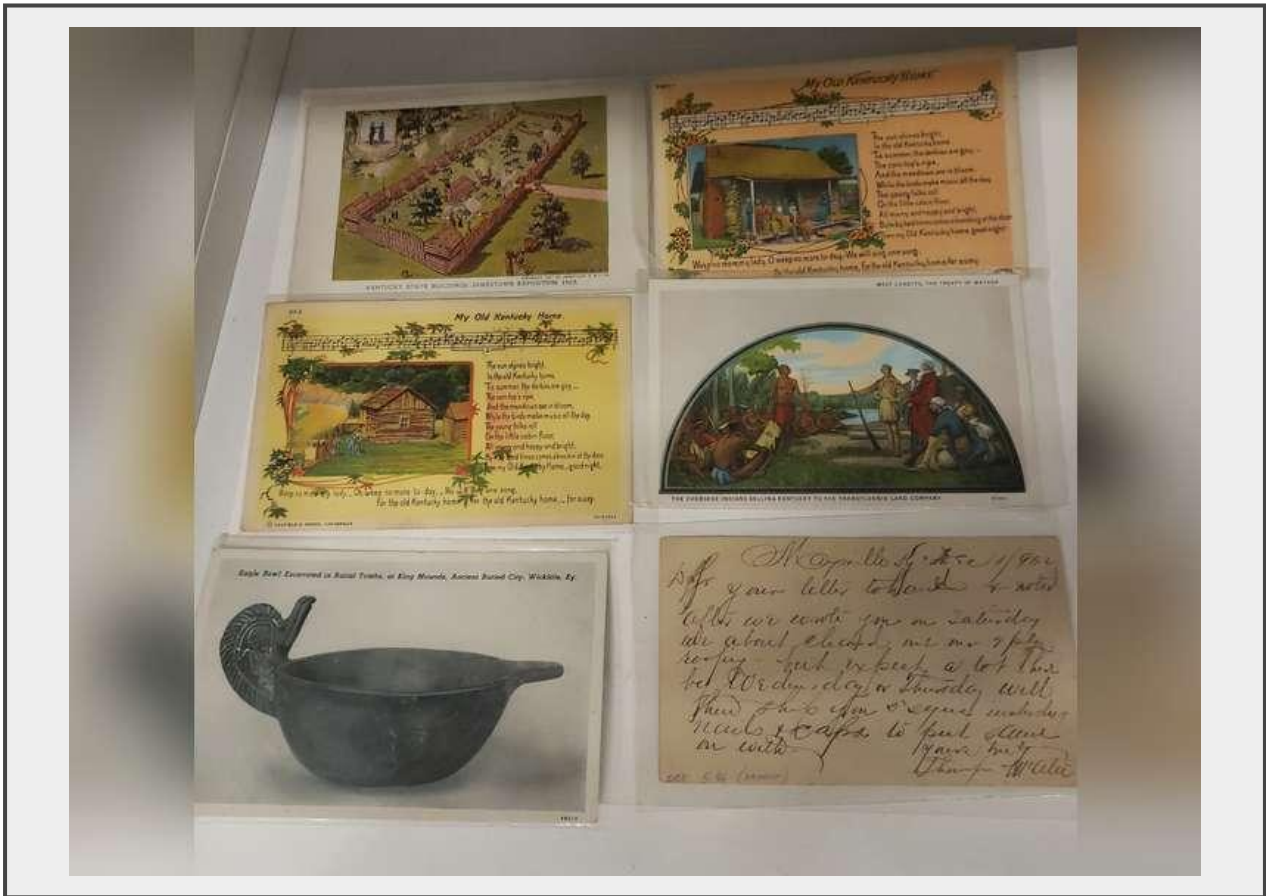 KENTUCKY STATE BUILDING, JAMESTOWN EXPOSITION, 1907
My Old Kentucky Home
The sun shines bright,
In the old Kentucky home
'Tis summer, the darkies are gay,
The corn top's ripe,
And the meadows are in bloom,
While the birds make music all the day,
The young folks roll
On the little cabin floor,
All merry and happy and bright,
my Old Kentucky home good night
Weep no more my lady, O weep no more to-day, We will sing one song,
For the old Kentucky home, for the old Kentucky home, far away.
My Old Kentucky Home
The sun shines bright,
In the old Kentucky home,
'Tis summer, the darkies are gay,
The corn top's ripe,
And the meadows are in bloom,
While the birds make music all the day.
The young folks roll
On the little cabin floor,
All merry and happy and bright,
my Old Kentucky Home, good night.
Weep no more my lady, Oh weep no more to-day, one song,
For the old Kentucky home, for the old Kentucky home, far away.
WEST LUNETTE, THE TREATY OF
THE CHEROKEE INDIANS SELLING KENTUCKY TO THE TRANSYLVANIA LAND COMPANY
Eagle Bowl Excavated in Burial Tombs, at King Mounds, Ancient Buried City, Wickliffe, Ky.
your letter to hand & noted
after we wrote you on Saturday
are about
roofing expect a lot
Wednesday or Thursday will
ship you
nails & caps to put same
on with